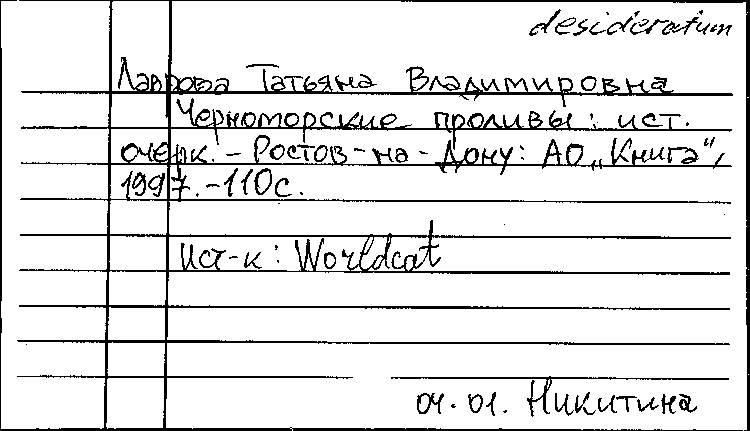 desideratum
Лаврова Татьяна Владимировна
Черноморские проливы: ист.
очерк. - Ростов-на-Дону: АО „Книга",
1997. - 110с.
Ист-к: Worldcat
04.01. Никитина